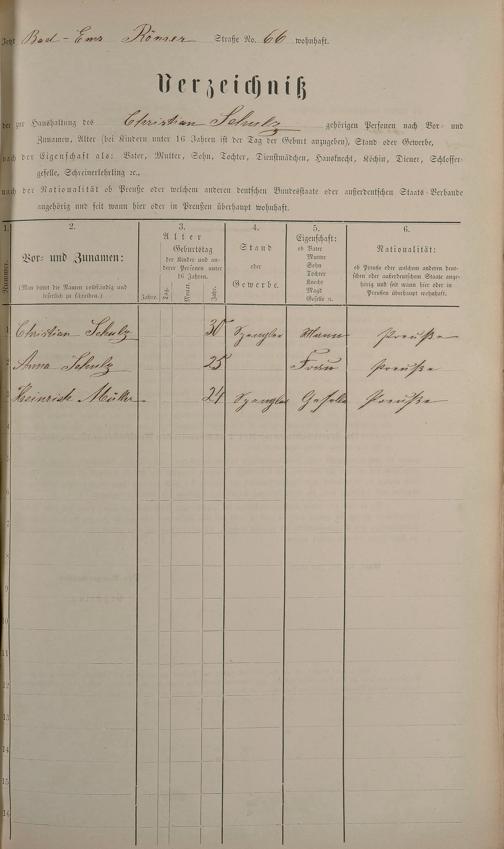 Jetzt Bad-Ems Römer Straße No. 66 wohnhaft.
Verzeichniß
der zur Haushaltung des Christian Schulz gehörigen Personen nach Vor- und
Zunamen, Alter (bei Kindern unter 16 Jahren ist der Tag der Geburt anzugeben), Stand oder Gewerbe,
nach der Eigenschaft als: Vater, Mutter, Sohn, Tochter, Dienstmädchen, Hausknecht, Köchin, Diener, Schlosser-
geselle, Schreinerlehrling ꝛc.,
nach der Nationalität ob Preuße oder welchem anderen deutschen Bundesstaate oder außerdeutschen Staats-Verbande
angehörig und seit wann hier oder in Preußen überhaupt wohnhaft.
1.
Nummer.
2.
Vor- und Zunamen:
(Man bittet die Namen vollständig und
leserlich zu schreiben.)
3.
Alter
Geburtstag
der Kinder und an-
derer Personen unter
16 Jahren.
Jahre. Tag. Monat. Jahr.
4.
Stand
oder
Gewerbe.
5.
Eigenschaft:
ob Vater
Mutter
Sohn
Tochter
Knecht
Magd
Geselle u.
6.
Nationalität:
ob Preuße oder welchem anderen deut-
schen oder außerdeutschem Staate ange-
hörig und seit wann hier oder in
Preußen überhaupt wohnhaft.
1 Christian Schulz 30 Spengler Mann Preuße
2 Anna Schulz 25 Frau Preuße
3 Heinrich Müller 24 Spengler Geselle Preuße
4
5
6
7
8
9
10
11
12
13
14
15
16